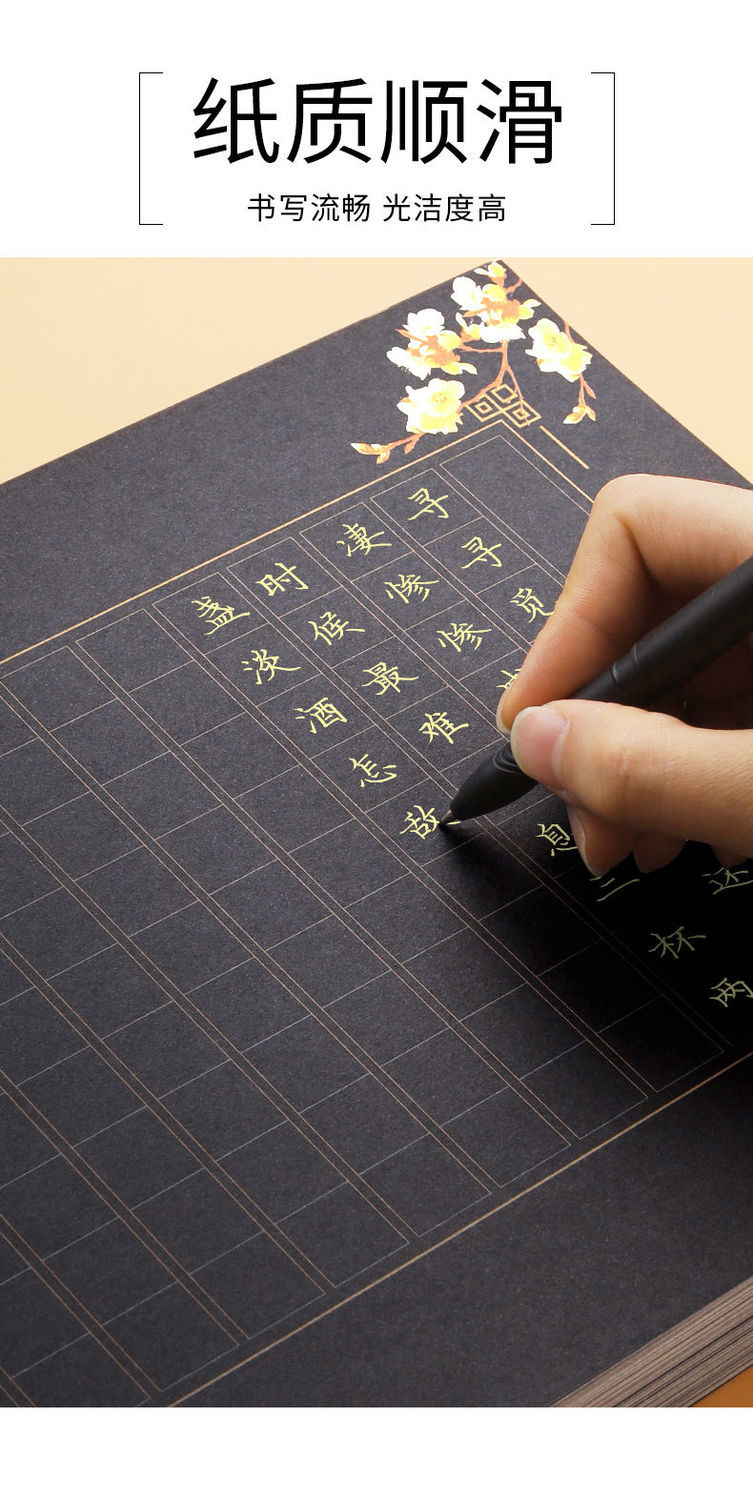 纸质顺滑
书写流畅 光洁度高
寻寻觅
凄惨惨
还
时候最难
息三杯两
盏淡酒怎敌